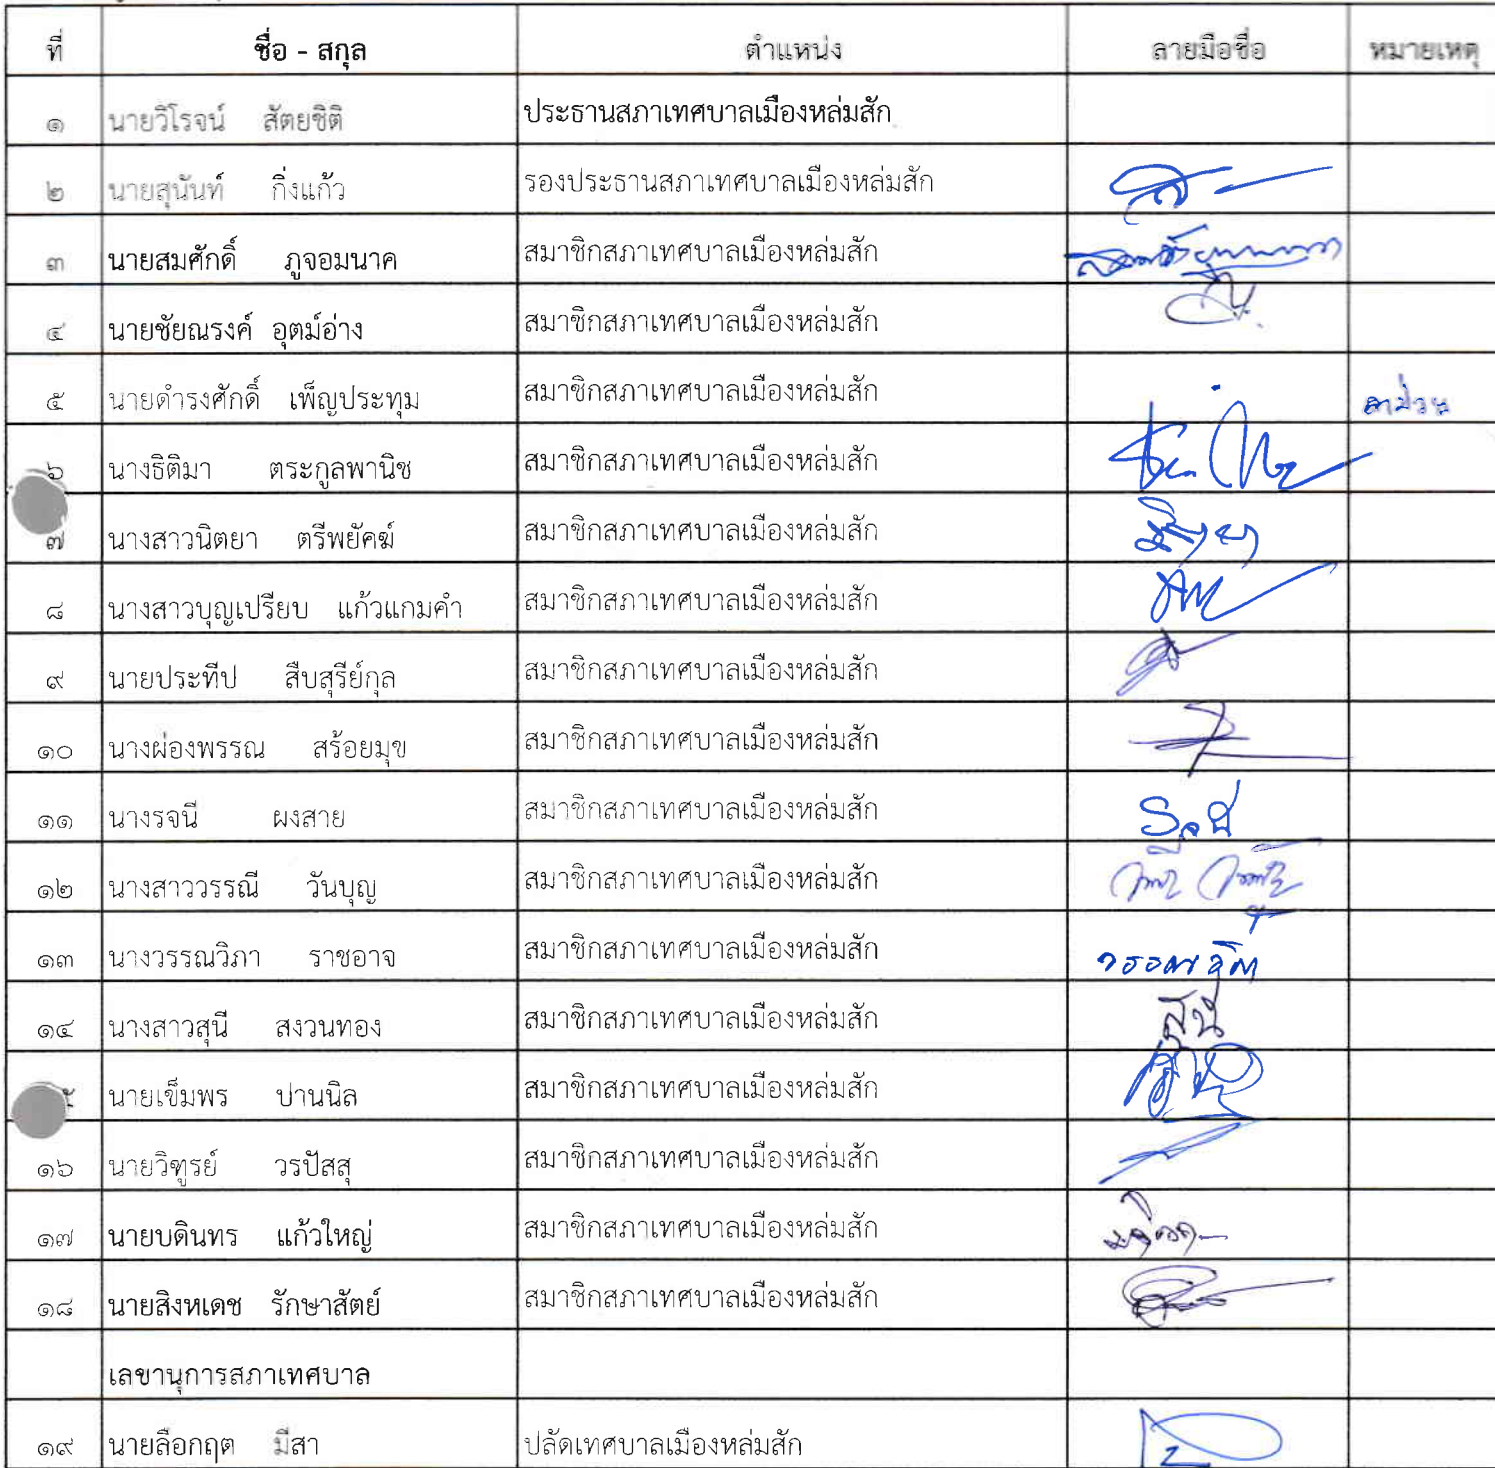 ที่ ชื่อ - สกุล ตำแหน่ง ลายมือชื่อ หมายเหตุ
๑ นายวิโรจน์ สัตยชิติ ประธานสภาเทศบาลเมืองหล่มสัก
๒ นายสุนันท์ กิ่งแก้ว รองประธานสภาเทศบาลเมืองหล่มสัก
๓ นายสมศักดิ์ ภูจอมนาค สมาชิกสภาเทศบาลเมืองหล่มสัก
๔ นายชัยณรงค์ อุตม์อ่าง สมาชิกสภาเทศบาลเมืองหล่มสัก
๕ นายดำรงศักดิ์ เพ็ญประทุม สมาชิกสภาเทศบาลเมืองหล่มสัก ลาป่วย
๖ นางธิติมา ตระกูลพานิช สมาชิกสภาเทศบาลเมืองหล่มสัก
๗ นางสาวนิตยา ตรีพยัคฆ์ สมาชิกสภาเทศบาลเมืองหล่มสัก
๘ นางสาวบุญเปรียบ แก้วแกมคำ สมาชิกสภาเทศบาลเมืองหล่มสัก
๙ นายประทีป สืบสุรีย์กุล สมาชิกสภาเทศบาลเมืองหล่มสัก
๑๐ นางผ่องพรรณ สร้อยมุข สมาชิกสภาเทศบาลเมืองหล่มสัก
๑๑ นางรจนี ผงสาย สมาชิกสภาเทศบาลเมืองหล่มสัก รจนี
๑๒ นางสาววรรณี วันบุญ สมาชิกสภาเทศบาลเมืองหล่มสัก
๑๓ นางวรรณวิภา ราชอาจ สมาชิกสภาเทศบาลเมืองหล่มสัก วรรณวิภา
๑๔ นางสาวสุนี สงวนทอง สมาชิกสภาเทศบาลเมืองหล่มสัก สุนี
นายเข็มพร ปานนิล สมาชิกสภาเทศบาลเมืองหล่มสัก
๑๖ นายวิฑูรย์ วรปัสสุ สมาชิกสภาเทศบาลเมืองหล่มสัก
๑๗ นายบดินทร แก้วใหญ่ สมาชิกสภาเทศบาลเมืองหล่มสัก
๑๘ นายสิงหเดช รักษาสัตย์ สมาชิกสภาเทศบาลเมืองหล่มสัก
เลขานุการสภาเทศบาล
๑๙ นายลือกฤต มีสา ปลัดเทศบาลเมืองหล่มสัก